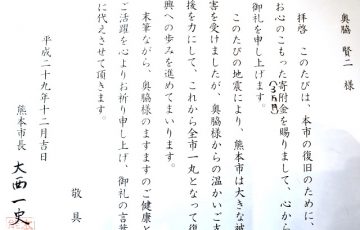 奥脇 賢二 様
拝啓 このたびは、本市の復旧のために、
お心のこもった寄附金を賜りまして、心から
御礼を申し上げます。
このたびの地震により、熊本市は大きな被
害を受けましたが、奥脇様からの温かいご支
後を力にして、これから全市一丸となって復
興への歩みを進めてまいります。
末筆ながら、奥脇様のますますのご健康と
ご活躍を心よりお祈り申し上げ、御礼の言葉
に代えさせて頂きます。
敬具
平成二十九年十二月吉日
熊本市長 大西一史